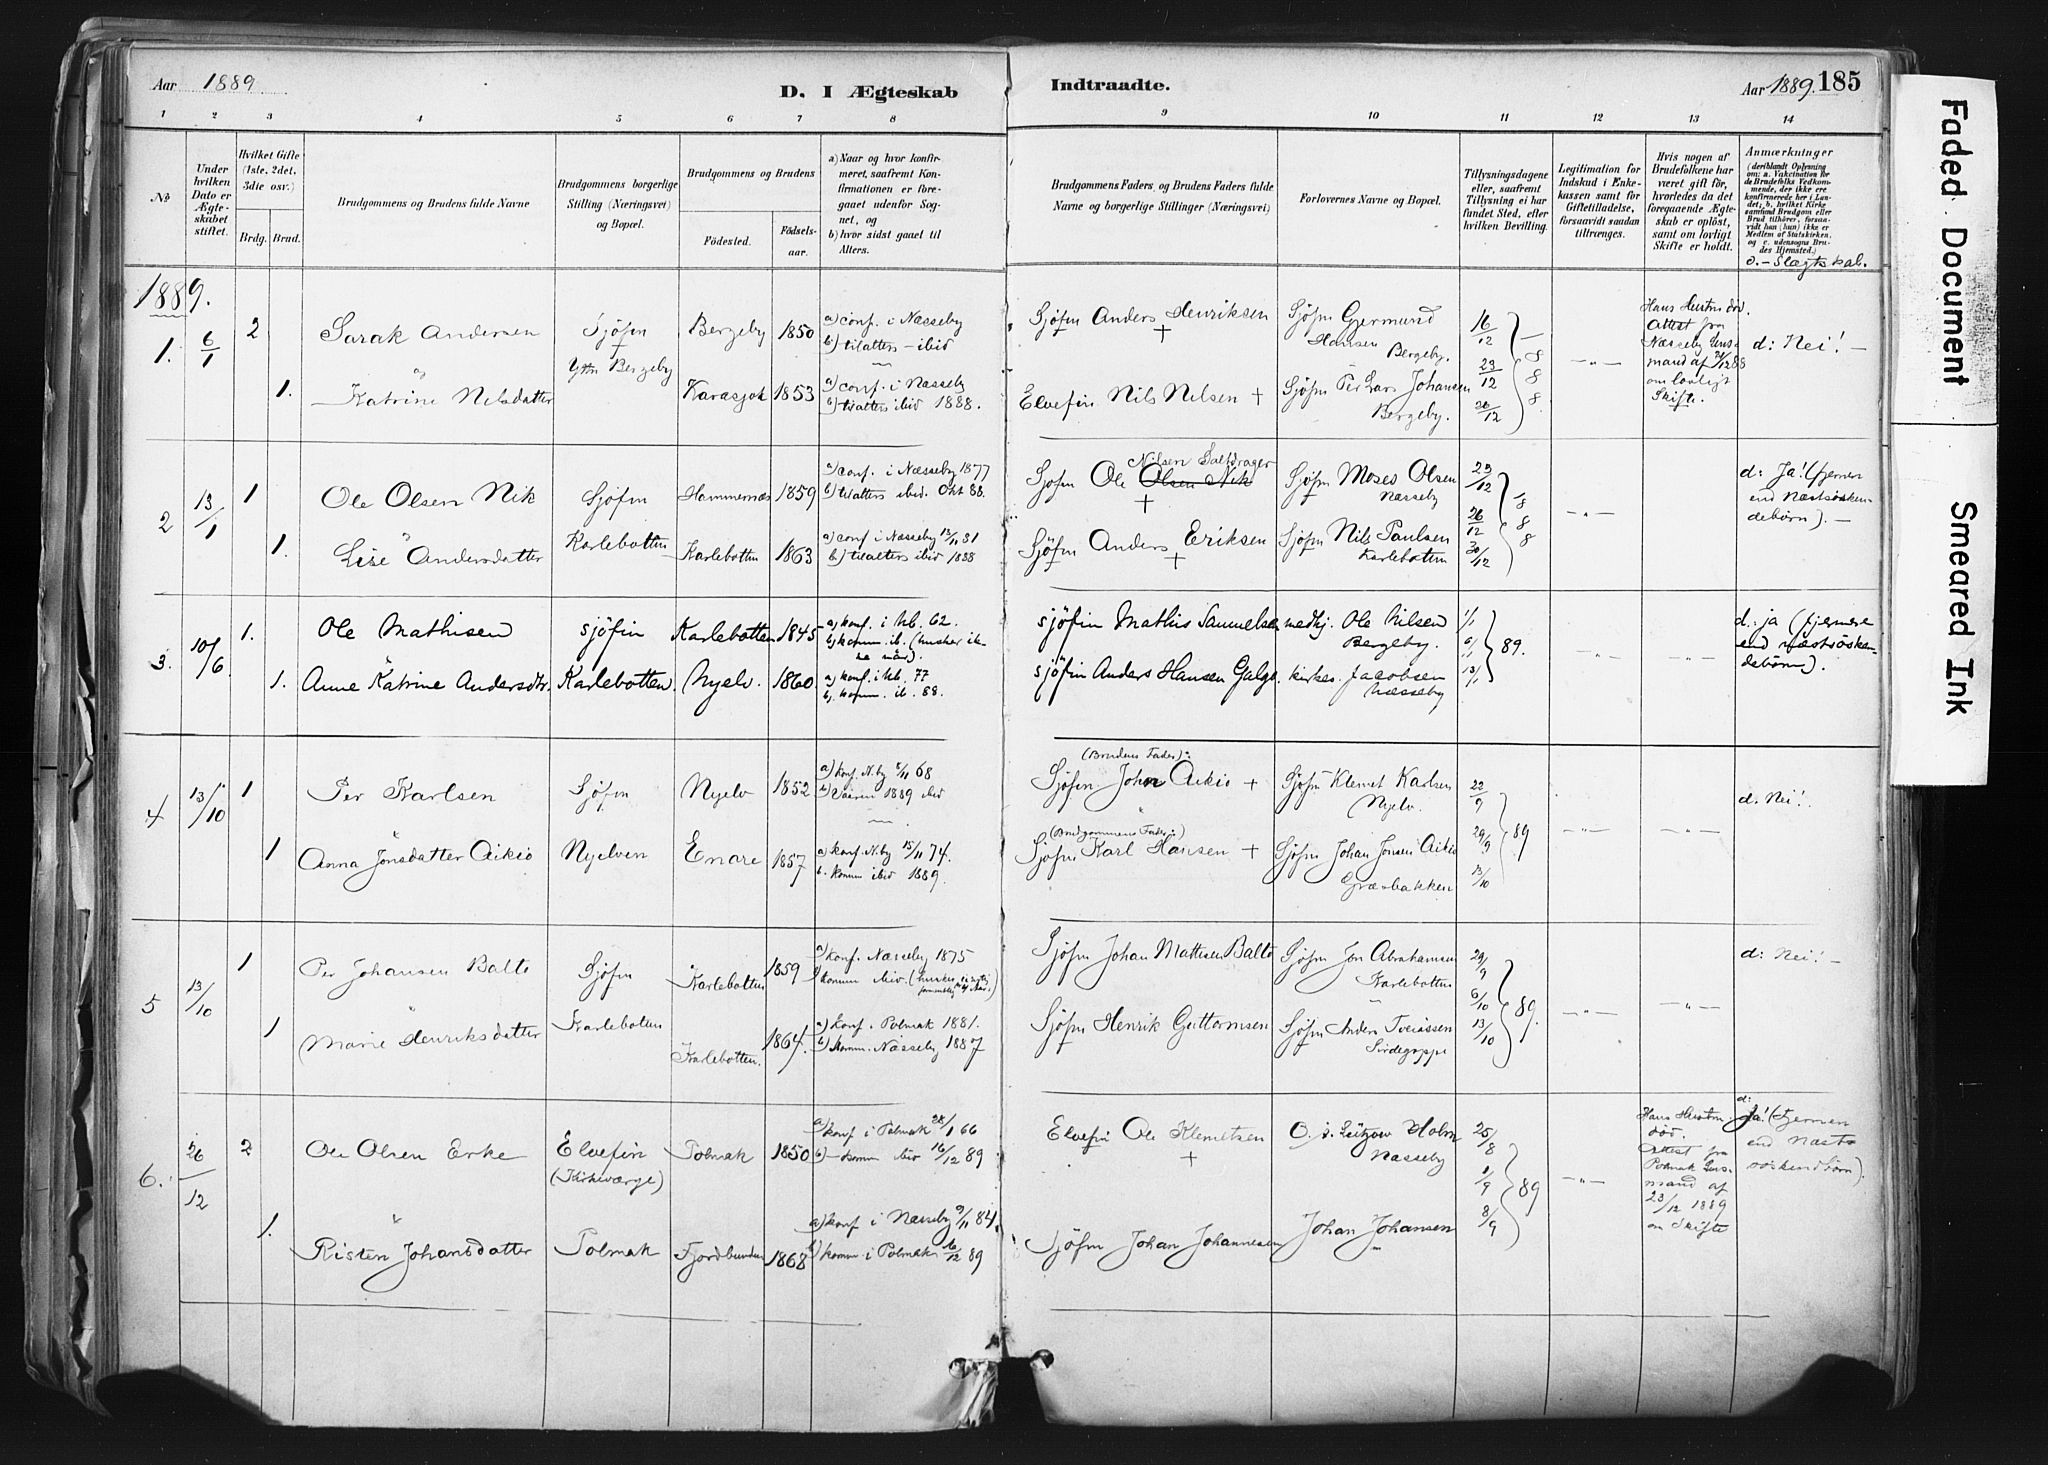 Aar 1889.
D. I Ægteskab
Indtraadte.
Aar 1889. 185
1 2 3 4 5 6 7 8 9 10 11 12 13 14
No
Under hvilken Dato er Ægteskabet stiftet.
Hvilket Gifte (1ste, 2det, 3die osv.)
Brdg. Brud.
Brudgommens og Brudens fulde Navne
Brudgommens borgerlige Stilling (Næringsvei) og Bopæl.
Brudgommens og Brudens
Fødested.
Fødselsaar.
a) Naar og hvor konfirmeret, saafremt Konfirmationen er foregaaet udenfor Sognet, og
b) hvor sidst gaaet til Alters.
Brudgommens Faders og Brudens Faders fulde Navne og borgerlige Stillinger (Næringsvei)
Forlovernes Navne og Bopæl.
Tillysningsdagene eller, saafremt Tillysning ei har fundet Sted, efter hvilken Bevilling.
Legitimation for Indskud i Enkekassen samt for Giftetilladelse, forsaavidt saadan tiltrænges.
Hvis nogen af Brudefolkene har været gift før, hvorledes da det foregaaende Ægteskab er opløst, samt om lovligt Skifte er holdt.
Anmærkninger
(deriblandt Oplysning om: a. Vakcination for de Brudefolks Vedkommende, der ikke ere konfirmerede her i Landet; b. hvilket Kirkesamfund Brudgom eller Brud tilhører, forsaavidt han (hun) ikke er Medlem af Statskirken, og c. udensogns Brudes Hjemsted.)
d. - Slægtskab.
1889.
1. 6/1 2 Sarak Andersen Sjöfin Bergeby 1850 a) conf. i Næsseby
b) tilalters - ibid
Sjöfin Anders Henriksen + Sjöfin Germund Hansen Bergeby. 16/12
Hans Hustru död. Attest fra Næsseby Lensmand af /12 88 om lovligt Skifte.
d: Nei! -
og Ytre Bergeby
1. Katrine Nilsdatter Karasjok 1853 a) conf. i Næsseby
b) tilalters ibid 1888.
Elvefin Nils Nilsen + Sjöfin Per Lars Johansen Bergeby. 23/12 26/12 1888. -"-
2 13/1 1 Ole Olsen Nik Sjöfin Hammernæs 1859 a) conf. i Næsseby 1877
b) tilalters ibid. Okt 88.
Sjöfin Ole Olsen Nik Nilsen Saltdrager + Sjöfin Moses Olsen Næsseby 23/12
d: Ja! (fjernere end Næstsöskendebörn). -
1. Lise Andersdatter Karlebotten Karlebotten 1863 a) conf i Næsseby 13/11 81
b) tilalters ibid 1888
Sjöfin Anders Eriksen + Sjöfin Nils Paulsen Karlebotten 26/12 30/12 1888 -"-
3. 10/6 1. Ole Mathisen sjöfin Karlebotten 1845 a) konf. i Nb. 62.
b) komm. ib. (husker ikke når).
sjöfin Mathis Sammelsen medhj. Ole Nilsen Bergeby. 1/1
d: ja (fjernere end næstsöskendebörn).
1. Anne Katrine Andersdtr. Karlebotten. Nyelv. 1860 a) konf. i Nb. 77
b) komm. ib. 88.
sjöfin Anders Hansen Galgo. kirkes. Jacobsen Næsseby 6/1 13/1 89. -"- -"-
4 13/10 1 Per Karlsen Sjöfin Nyelv 1852 a) konf. N.by /11 68
b) Vaaren 1889 ibid
(Brudens Fader):
Sjöfin John Aikio + Sjöfin Klemet Karlsen Nyelv. 22/9
d. Nei!
1 Anna Jonsdatter Aikio Nyelven Enare 1857 a) konf. N.by 15/11 74.
b. komm ibid 1889.
(Brudgommens Fader:)
Sjöfin Karl Hansen + Sjöfin Johan Jonsen Aikio Græsbakken 29/9 13/10 89 -"- -"-
5 13/10 1 Per Johansen Balto Sjöfin Karlebotten 1859 a) konf. Næsseby 1875
Sjöfin Johan Mathisen Balto Sjöfin Jon Abrahamsen Karlebotten 29/9
d: Nei! -
1 Marie Henriksdatter Karlebotten Karlebotten. 1864. a) konf. Polmak 1881.
b) komm. Næsseby 1887
Sjöfin Henrik Guttormsen Sjöfin Anders Tveiassen 6/10 13/10 89. -"- -"-
6. 26/12 2 Ole Olsen Erke Elvefin (Kirkeværge) Polmak 1850 a) konf i Polmak 28/1 66
b) - komm ibid 16/12 89
Elvefin Ole Klemetsen + O. s. Lützow Holm Næsseby 25/8
Hans Hustru död. Attest fra Polmak Lensmand af 23/12 1889 om Skifte
d: Ja! (fjernere end Næstsöskendbörn).
1. Risten Johansdatter Polmak Fjordbunden 1868 a) konf i Næsseby 9/11 84.
b) komm. i Polmak 16/12 89
Sjöfin Johan Johannesen Johan Johansen 1/9 8/9 89 -"-
Faded Document
Smeared Ink